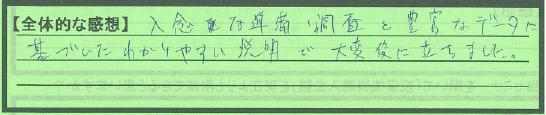 【全体的な感想】入念な準備・調査と豊富なデータに
基づいたわかりやすい説明で大変役に立ちました。